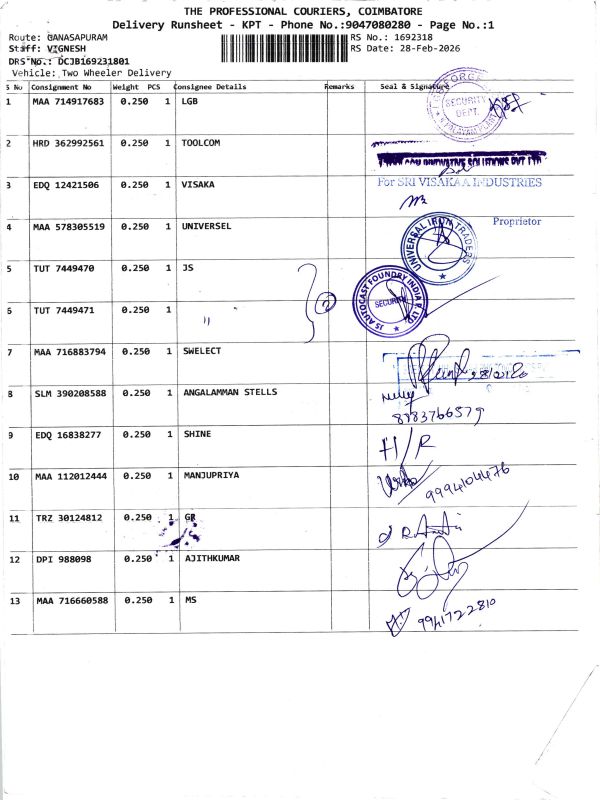 THE PROFESSIONAL COURIERS, COIMBATORE
Delivery Runsheet - KPT - Phone No.:9047080280 - Page No.:1
Route: GANASAPURAM
RS No.: 1692318
Staff: VIGNESH
RS Date: 28-Feb-2026
DRS No.: DCJB169231801
Vehicle: Two Wheeler Delivery
S No Consignment No Weight PCS Consignee Details Remarks Seal & Signature
1 MAA 714917683 0.250 1 LGB
SECURITY DEPT.
2 HRD 362992561 0.250 1 TOOLCOM
INNOVATIVE SOLUTIONS PVT LTD
3 EDQ 12421506 0.250 1 VISAKA
For SRI VISAKAA INDUSTRIES
Proprietor
4 MAA 578305519 0.250 1 UNIVERSEL
UNIVERSAL IRON TRADERS
5 TUT 7449470 0.250 1 JS
JS AUTOCAST FOUNDRY INDIA P LTD
SECURITY
6 TUT 7449471 0.250 1 "
2
7 MAA 716883794 0.250 1 SWELECT
8 SLM 390208588 0.250 1 ANGALAMMAN STELLS
8883766579
9 EDQ 16838277 0.250 1 SHINE
H/R
10 MAA 112012444 0.250 1 MANJUPRIYA
9994104476
11 TRZ 30124812 0.250 1 GR
12 DPI 988098 0.250 1 AJITHKUMAR
13 MAA 716660588 0.250 1 MS
9941722810